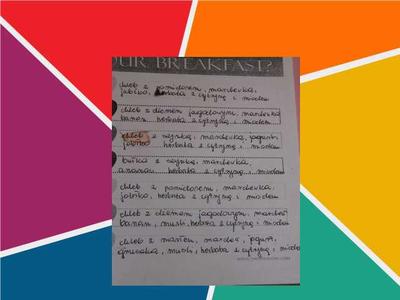 OUR BREAKFAST?
chleb z pomidorem, marchewka,
jabłko, herbata z cytryną i miodem
chleb z dżemem jagodowym, marchewka
banan, herbata z cytryną i miodem
chleb z szynką, marchewka, jogurt
jabłko herbata z cytryną i miodem
bułka z szynką, marchewka,
ananas, herbata z cytryną i miodem
chleb z pomidorem, marchewka,
jabłko, herbata z cytryną i miodem
chleb z dżemem jagodowym,
banan, musli, herbata z cytryną i miodem
chleb z masłem, jogurt,
musli, herbata z cytryną i miodem